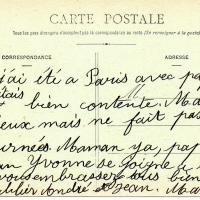 CARTE POSTALE
Tous les pays étrangers n'acceptent pas la correspondance au recto (Se renseigner à la poste).
CORRESPONDANCE
ADRESSE
j'ai été a Paris avec pa
étais bien contente. Ma
eux mais ne fait pas
urnées. Maman ya, pap
an Yvonne se joigne à
vous embrasser tous bien
André et Jean. Ma